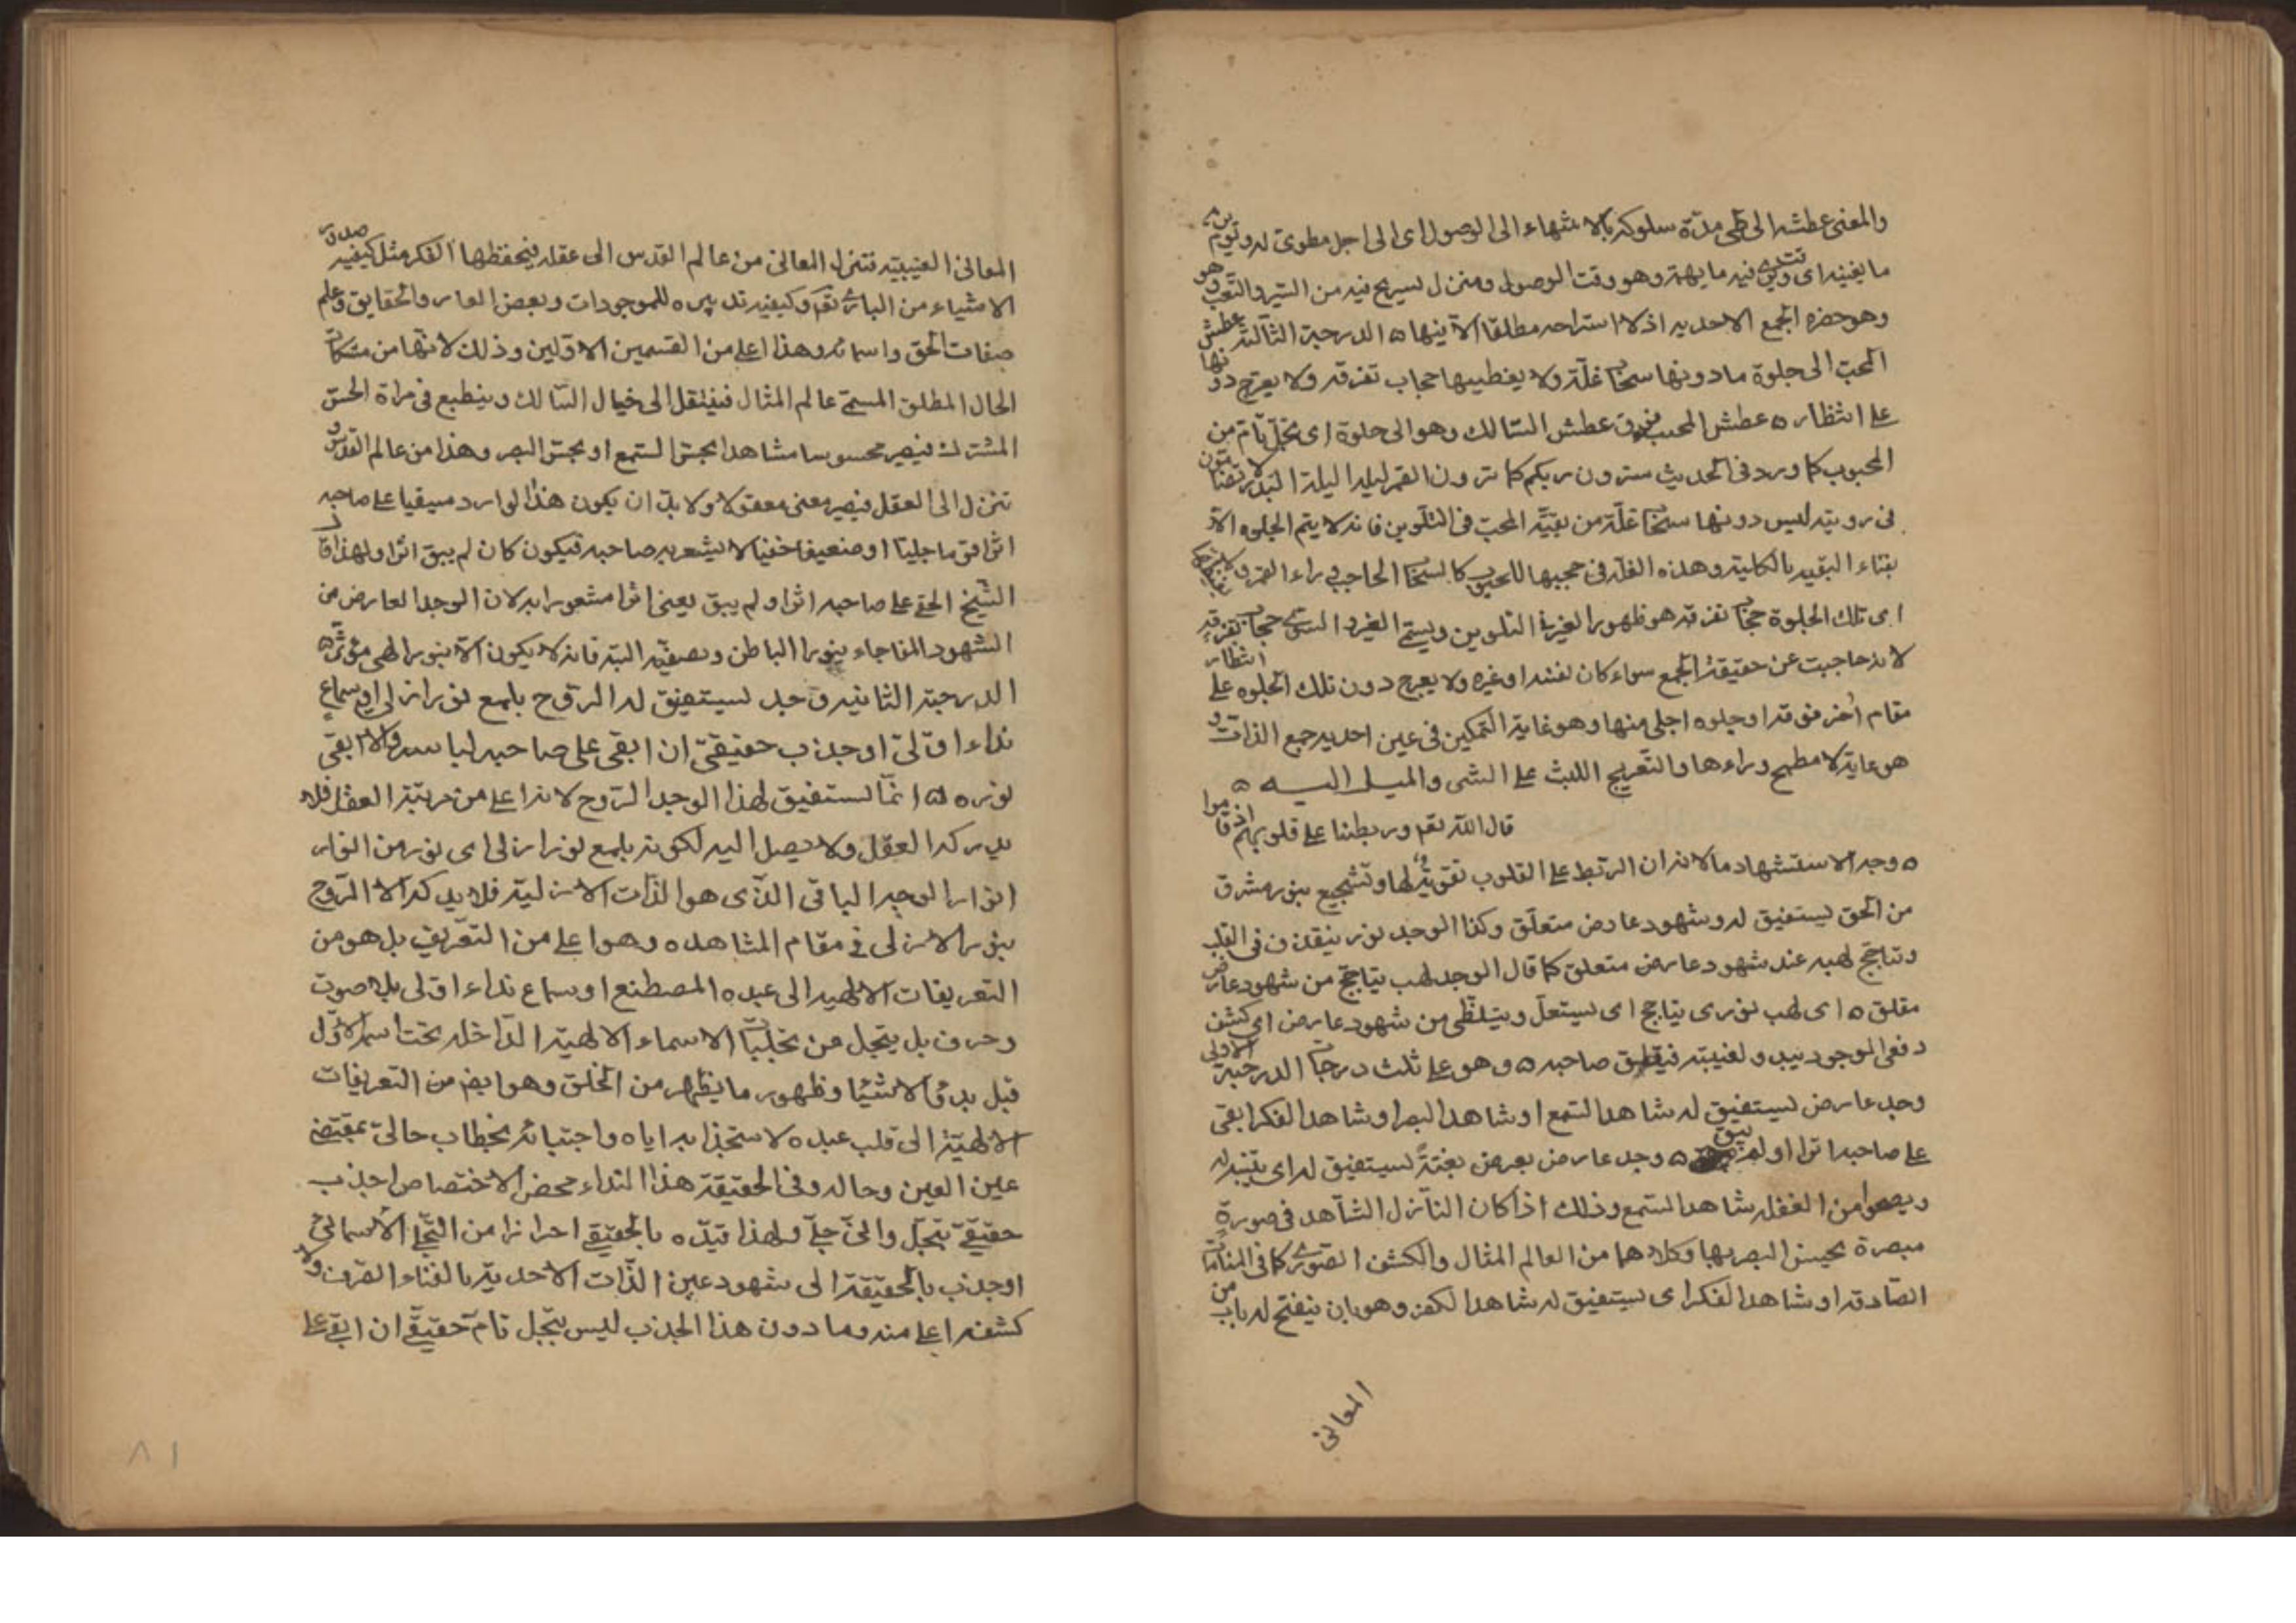 والمعنى عطشه الى طى مدة سلوكه بالاشتهاء الى الوصول اى الى اجل مطوى له ويوم يرى
ما يفنيه اى ويرى فيه ما يهمه وهو وقت الوصول ومنزل يستريح فيه من السير والتعب وهو
وهو حضرة الجمع الاحديه اذ لا استراحه مطلقا الا فيها ه الدرجة الثالثة عطش
المحب الى جلوة ما دونها سحاب علة ولا يغطيها حجاب تفرقه ولا يعرج دونها
على انتظار ه عطش المحب فوق عطش السالك وهو الى جلوة اى تجلى تام من
المحبوب كما ورد فى الحديث سترون ربكم كما ترون القمر ليلة البدر لا تضامون
فى رويته ليس دونها سحاب علة من بقيّة المحب فى التلوين فانه لا يتم الجلوه الا
بفناء البقيه بالكلية وهذه العلة فى حجبها للمحبوب كالسحاب الحاجب وراء القمر ولا
اى تلك الجلوة حجاب تفرقه هو ظهور الغير فى التلوين ويسمى الغير والسوى حجاب تفرقه
لانه حاجبت عن حقيقة الجمع سواء كان نفسه او غيره ولا يعرج دون تلك الجلوه على انتظار
مقام آخر فوقه او جلوه اجلى منها وهو غاية التمكين فى عين احديه جمع الذات و
هو غاية لا مطمح وراءها والتعريج اللبث على الشى والميل اليه ه
قال الله تعم وربطنا على قلوبهم اذ قاموا
ه وجه الاستشهاد مالانه ان الربط على القلوب تقوية لها وتشجيع بنور مشرق
من الحق يستفيق له وشهود عارض متعلق وكذا الوجد نور ينقذف فى القلب
وتتاجج لهبه عند شهود عارض متعلق كما قال الوجد لهب يتاجج من شهود عارض
مقلق ه اى لهب نورى يتاجج اى يستعل ويتلظى من شهود عارض اى كشف
دفعى لموجود يبدو لغيبته فيقلق صاحبه ه وهو على ثلث درجات الدرجة الاولى
وجد عارض يستفيق له شاهد السمع او شاهد البصر او شاهد الفكر ابقى
على صاحبه اثرا او لم يبق ه وجد عارض يعرض بغتةً يستفيق له اى يتنبه له
ويصحو من الغفله شاهد السمع وذلك اذا كان النازل الشاهد فى صورة
مبصرة يحسن البصر بها وكلاهما من العالم المثال والكشف الصورى كما فى المنامات
الصادقه او شاهد الفكر اى يستفيق له شاهد الفكر وهو بان ينفتح له باب من
المعانى
المعانى الغيبيّه فتنزل المعانى من عالم القدس الى عقله فيحفظها الفكر مثل كيفيه صدور
الاشياء من البارى تعم وكيفيه تدبيره للموجودات وبعض المعارف والحقايق وعلم
صفات الحق واسمائه وهذا اعلى من القسمين الاولين وذلك لانها من مشكاة
الحال المطلق المسمى عالم المثال فينتقل الى خيال السالك وينطبع فى مرآة الحس
المشترك فيصير محسوسا مشاهدا بحس السمع او بحس البصر وهذا من عالم القدس و
تنزل الى العقل فيصير معنى معقولا ولا بد ان يكون هذا الوارد مبقيا على صاحبه
اثرا قويّا جليّا او ضعيفا خفيّا لا يشعر به صاحبه فيكون كان لم يبق اثرا ولهذا قال
الشيخ ابقى على صاحبه اثرا و لم يبق يعنى اثرا مشعورا به لان الوجد العارض من
الشهود المفاجاء ينور الباطن ويصفيه البته فانه لا يكون الا بنور الهى مؤثر ه
الدرجة الثانيه وجد يستفيق له الروح بلمع نور ازلى او سماع
نداء اولى او جذب حقيقى ان ابقى على صاحبه لباسه والا ابقى
نوره ه انما يستفيق لهذا الوجد الروح لانه اعلى من مرتبة العقل فلا
يدركه العقل ولا يصل اليه لكونه بلمع نور ازلى اى نور من انوار
انوار الوجه الباقى الذى هو الذات الازلية فلا يدركه الا الروح
بنور الازلى فى مقام المشاهده وهو اعلى من التعريف بل هو من
التعريفات الالهيه الى عبده المصطنع او سماع نداء اولى بلا صوت
وحرف بل يتجلى من تجليات الاسماء الالهيّة الداخله تحت اسم الاول
قبل بدؤ الاشيا وظهور ما يظهر من الخلق وهو ايضا من التعريفات
الالهيّة الى قلب عبده لاستجذابه اياه واجتبائه بخطاب حالى بمقتضى
عين العين وحاله وفى الحقيقة هذا النداء محض الاختصاص او جذب
حقيقى بتجلى والى جلى ولهذا قيده بالحقيقى احترازا من التجلى الاسمائى
او جذب بالحقيقة الى شهود عين الذات الاحدية بالفناء الصرف ولا
كشف اعلى منه وما دون هذا الجذب ليس بتجلى تام حقيقى ان ابقى على
٨١